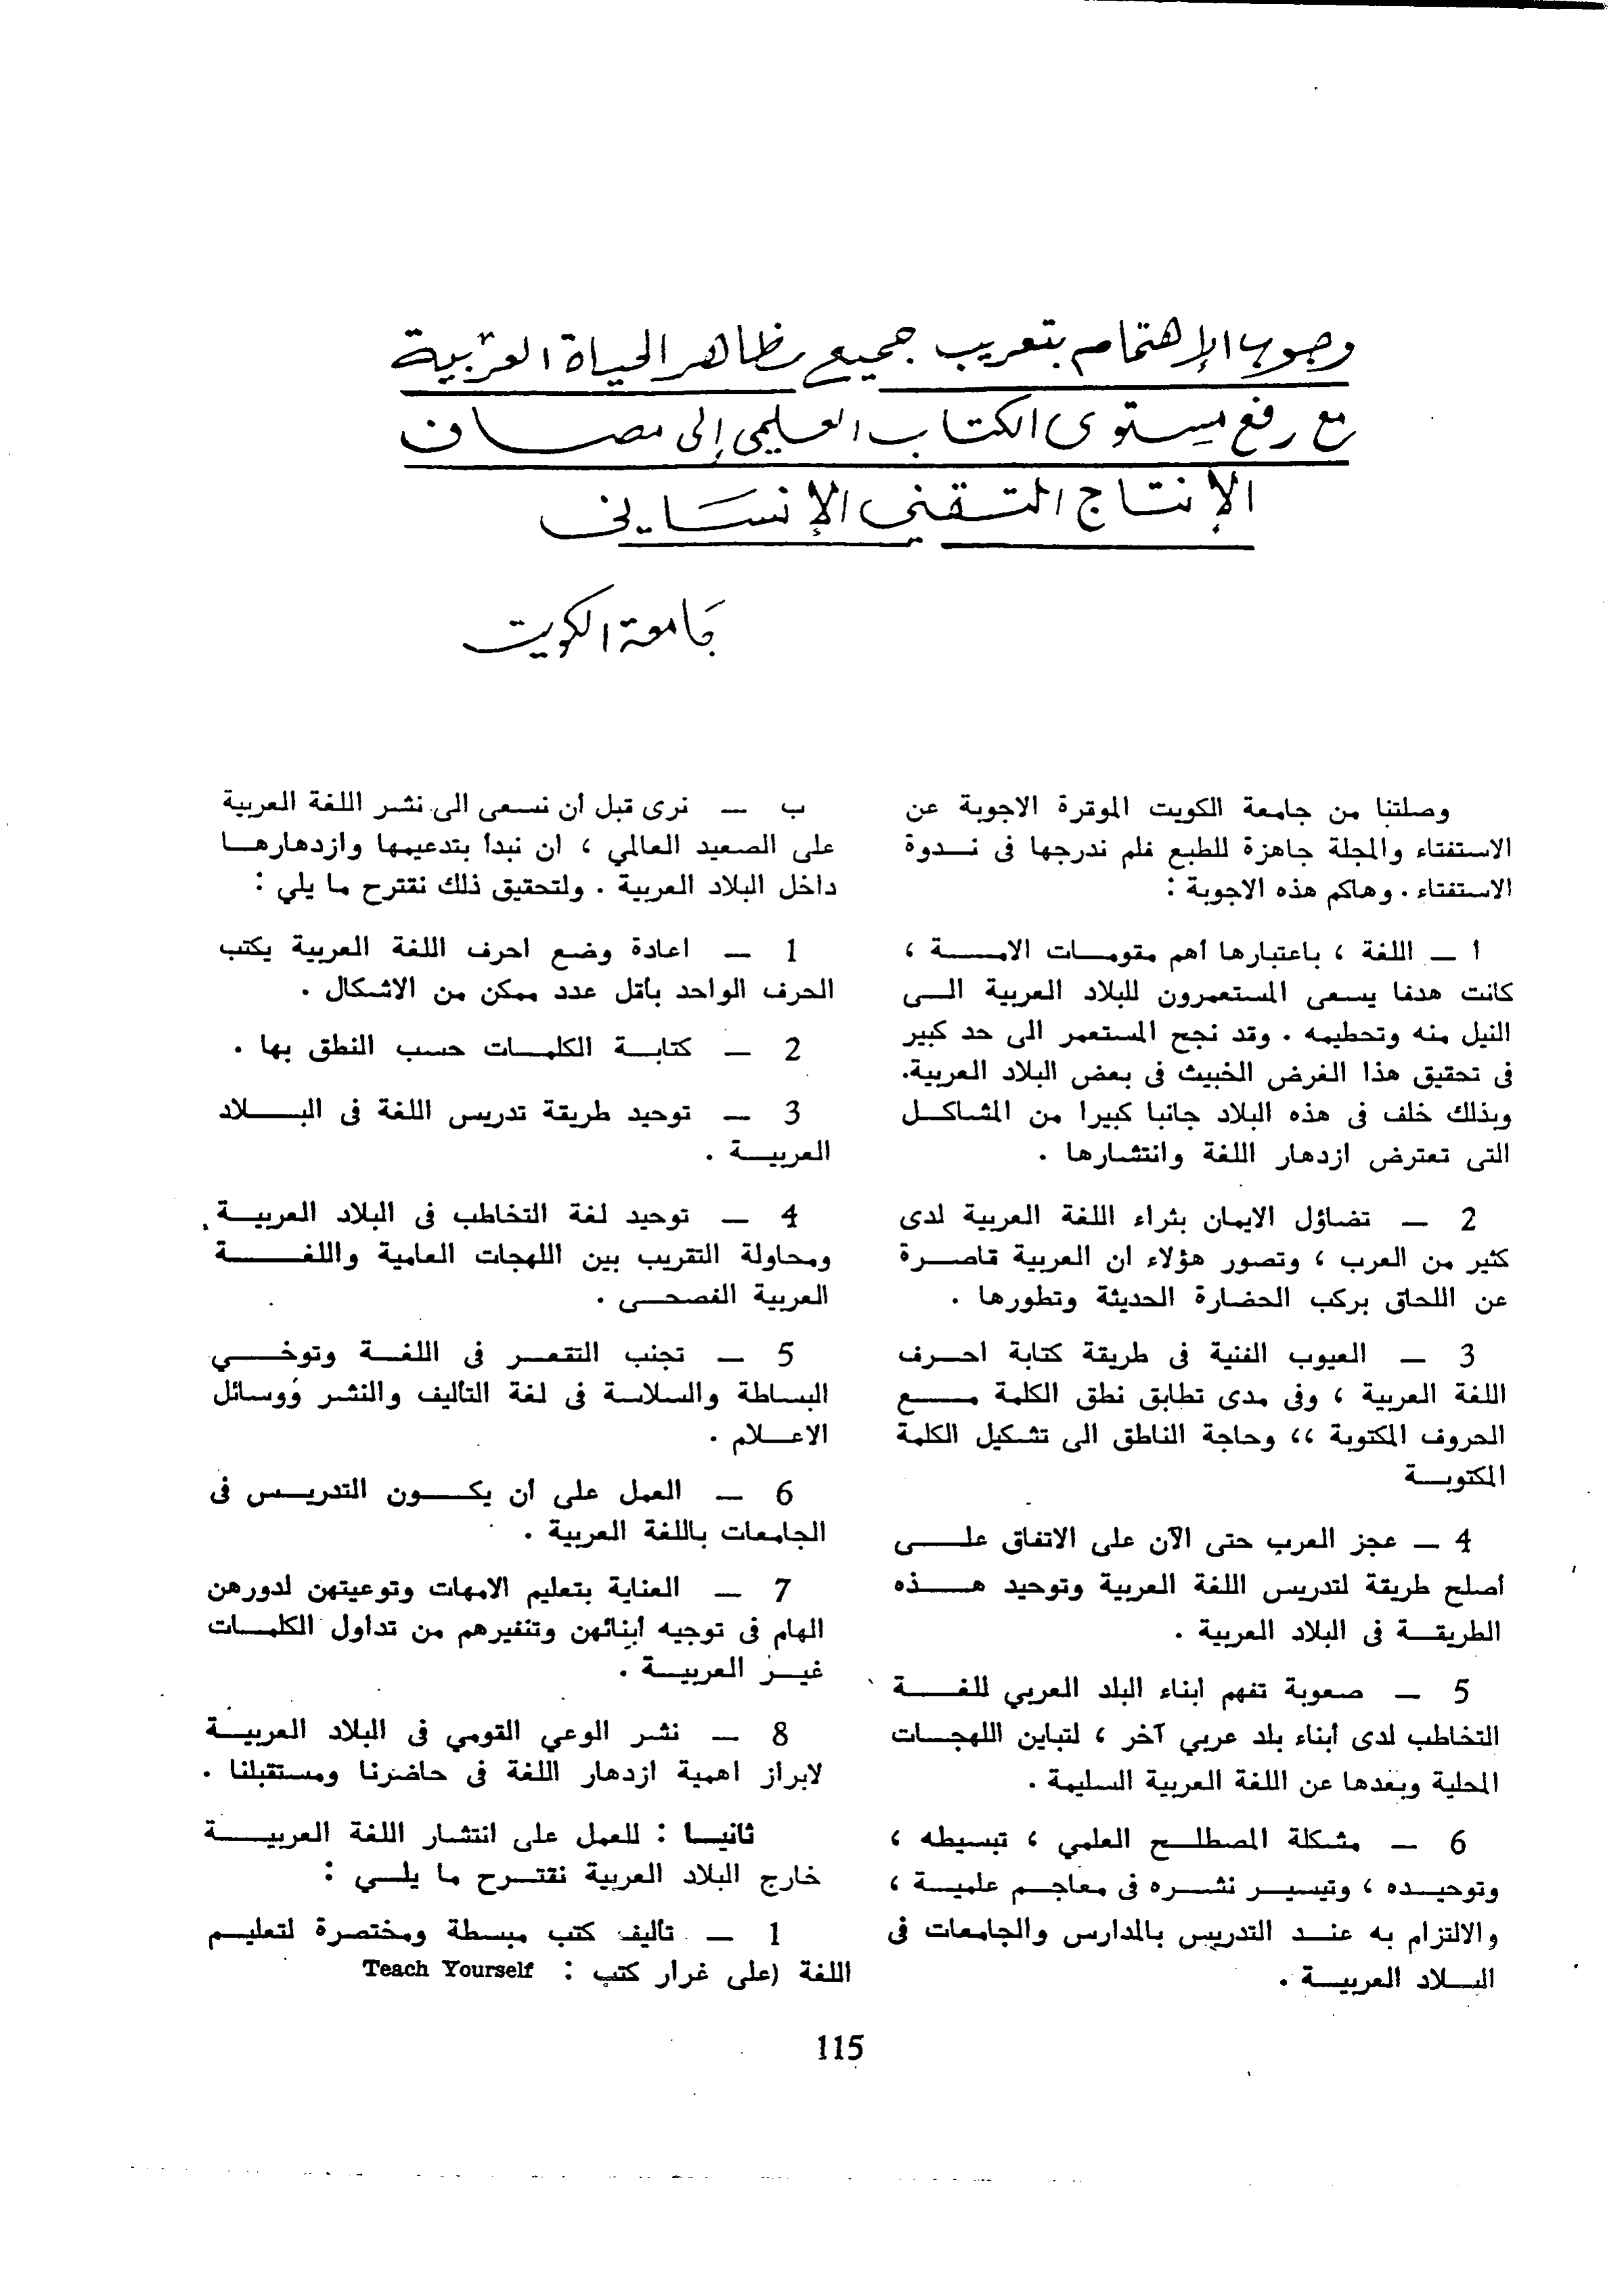 وجوب الإهتمام بتعريب جميع مظاهر الحياة العربية
مع رفع مستوى الكتاب العلمي إلى مصاف
الإنتاج التقني الإنساني
جامعة الكويت
وصلتنا من جامعة الكويت الموقرة الاجوبة عن
الاستفتاء والمجلة جاهزة للطبع فلم ندرجها فى نــدوة
الاستفتاء . وهاكم هذه الاجوبة :
أ — اللغة ، باعتبارها أهم مقومــات الامــــة ،
كانت هدفا يسعى المستعمرون للبلاد العربية الــى
النيل منه وتحطيمه . وقد نجح المستعمر الى حد كبير
فى تحقيق هذا الغرض الخبيث فى بعض البلاد العربية.
وبذلك خلف فى هذه البلاد جانبا كبيرا من المشاكــل
التى تعترض ازدهار اللغة وانتشارها .
2 — تضاؤل الايمان بثراء اللغة العربية لدى
كثير من العرب ، وتصور هؤلاء ان العربية قاصــرة
عن اللحاق بركب الحضارة الحديثة وتطورها .
3 — العيوب الفنية فى طريقة كتابة احــرف
اللغة العربية ، وفى مدى تطابق نطق الكلمة مــــع
الحروف المكتوبة ،، وحاجة الناطق الى تشكيل الكلمة
المكتوبــة
4 — عجز العرب حتى الآن على الاتفاق علــــى
أصلح طريقة لتدريس اللغة العربية وتوحيد هــــذه
الطريقــة فى البلاد العربية .
5 — صعوبة تفهم ابناء البلد العربي للغــــة
التخاطب لدى أبناء بلد عربي آخر ، لتباين اللهجــات
المحلية وبعدها عن اللغة العربية السليمة .
6 — مشكلة المصطلــح العلمي ، تبسيطه ،
وتوحيــده ، وتيسيــر نشــره فى معاجــم علميــة ،
والالتزام به عنــد التدريس بالمدارس والجامعات فى
البــلاد العربيــة .
ب — نرى قبل أن نسعى الى نشر اللغة العربية
على الصعيد العالمي ، ان نبدأ بتدعيمها وازدهارهــا
داخل البلاد العربية . ولتحقيق ذلك نقترح ما يلي :
1 — اعادة وضع احرف اللغة العربية يكتب
الحرف الواحد بأقل عدد ممكن من الاشكال .
2 — كتابــة الكلمــات حسب النطق بها .
3 — توحيد طريقة تدريس اللغة فى البــــلاد
العربيــة .
4 — توحيد لغة التخاطب فى البلاد العربيــة
ومحاولة التقريب بين اللهجات العامية واللغــــــة
العربية الفصحــى .
5 — تجنب التقعــر فى اللغــة وتوخــــي
البساطة والسلاسة فى لغة التأليف والنشر ووسائل
الاعــلام .
6 — العمل على أن يكــــون التدريــس فى
الجامعات باللغة العربية .
7 — العناية بتعليم الامهات وتوعيتهن لدورهن
الهام فى توجيه أبنائهن وتنفيرهم من تداول الكلمــات
غيــر العربيــة .
8 — نشر الوعي القومي فى البلاد العربيــة
لابراز اهمية ازدهار اللغة فى حاضرنا ومستقبلنا .
ثانيــا : للعمل على انتشار اللغة العربيــــة
خارج البلاد العربية نقتــرح ما يلــي :
1 — تأليف كتب مبسطة ومختصرة لتعليــم
اللغة (على غرار كتب : Teach Yourself
115